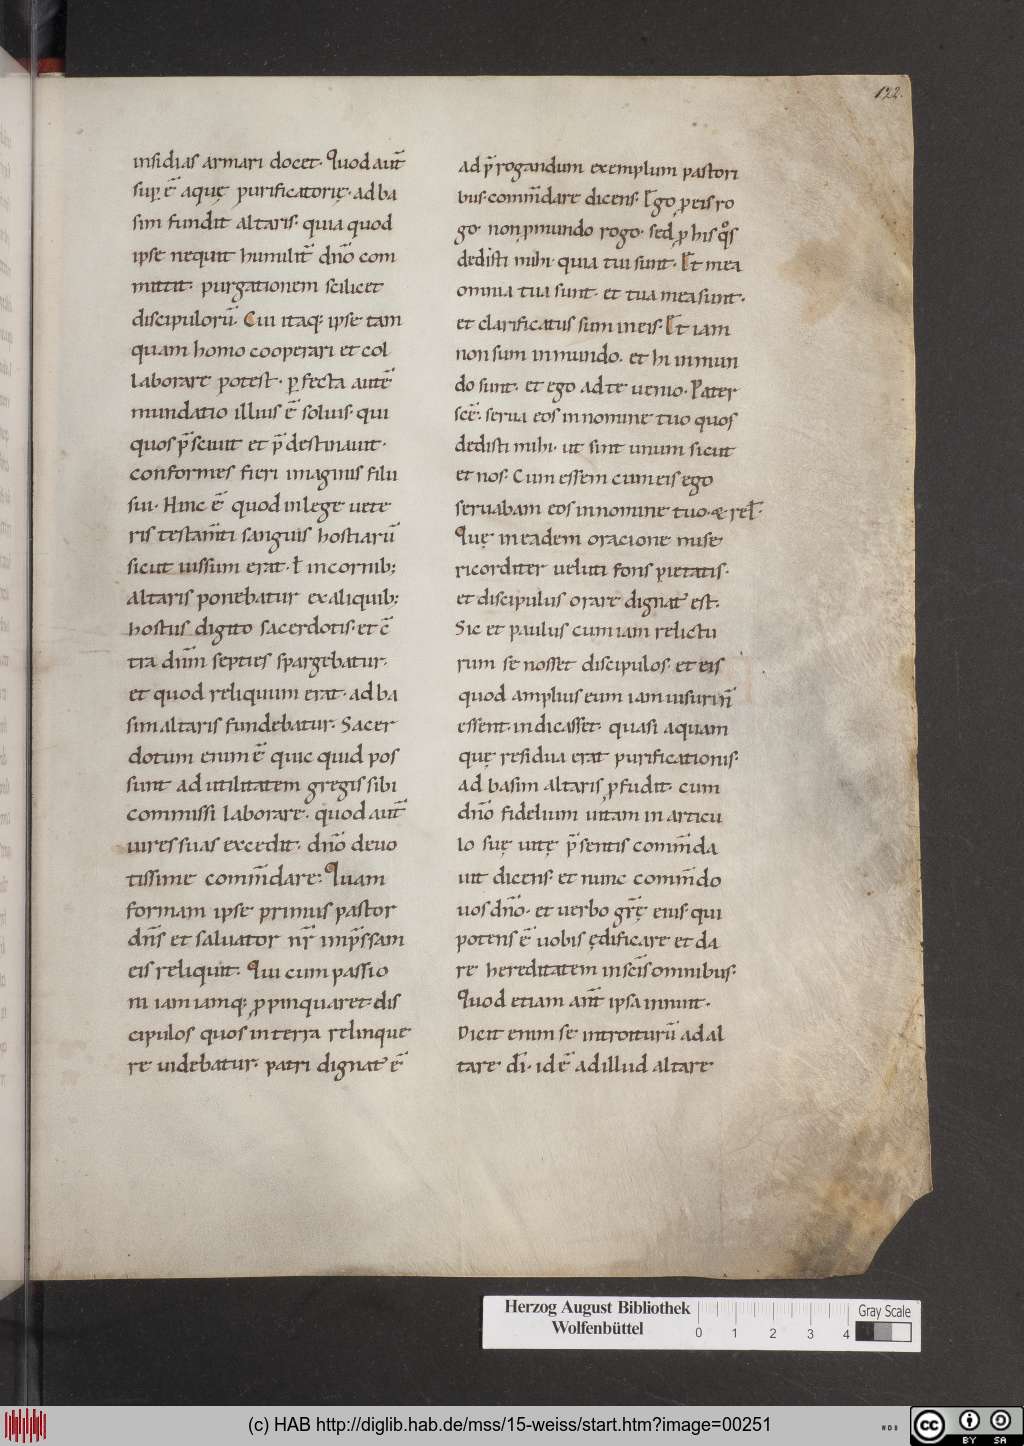 122.
insidias armari docet· Quod aut̄
sup̱ ē aquę purificatorię· ad ba
sim fundit altaris· quia quod
ipse nequit humilit̄ dn̄o com
mittit· purgationem scilicet
discipulorū· Cui itaq; ipse tam
quam homo cooperari et col
laborare potest· p̱fecta autē
mundatio illius ē solius· qui
quos p̄sciuit et p̄destinauit·
conformes fieri imaginis filii
sui· Hinc ē quod in lege uete
ris testam̄ti sanguis hostiarū
sicut iussum erat· ł in cornib;
altaris ponebatur ex aliquib;
hostiis digito sacerdotis· et c̄
tra dn̄m septies spargebatur·
et quod reliquum erat· ad ba
sim altaris fundebatur· Sacer
dotum enim ē quic quid pos
sunt ad utilitatem gregis sibi
commissi laborare· quod aut̄
uires suas excedit· dn̄o deuo
tissime comm̄dare· Quam
formam ipse primus pastor
dn̄s et saluator nr̄ imp̄ssam
eis reliquit· Qui cum passio
ni iam iamq; ꝓpinquaret· dis
cipulos quos in terra relinque
re uidebatur· patri dignat᷒ ē
ad p̄rogandum exemplum pastori
bus· comm̄dare dicens· Ego ꝓ eis ro
go· non ꝓ mundo rogo· sed ꝓ his qͦs
dedisti mihi· quia tui sunt· Et mea
omnia tua sunt· et tua mea sunt·
et clarificatus sum in eis· Et iam
non sum in mundo· et hi in mun
do sunt· et ego ad te uenio· Pater
scē· serua eos in nomine tuo quos
dedisti mihi· ut sint unum sicut
et nos· Cum essem cum eis ego
seruabam eos in nomine tuo· & rel̄·
Quę in eadem oracione mise
ricorditer ueluti fons pietatis·
et discipulis orare dignat᷒ est·
Sic et paulus cum iam relictu
rum se nosset discipulos· et eis
quod amplius eum iam uisuri n̄
essent· indicasset· quasi aquam
quę residua erat purificationis·
ad basim altaris ꝓfudit· cum
dn̄o fidelium uitam in articu
lo suę uitę p̄sentis comm̄da
uit dicens· et nunc comm̄do
uos dn̄o· et uerbo gr̄ę eius· qui
potens ē uobis ędificare et da
re hereditatem in scīs omnibus·
Quod etiam ant̄ ipsa innuit·
Dicit enim se introiturū ad al
tare dī· id ē ad illud altare
Herzog August Bibliothek
Wolfenbüttel
0 1 2 3 4
Gray Scale
(c) HAB http://diglib.hab.de/mss/15-weiss/start.htm?image=00251
cc
BY SA